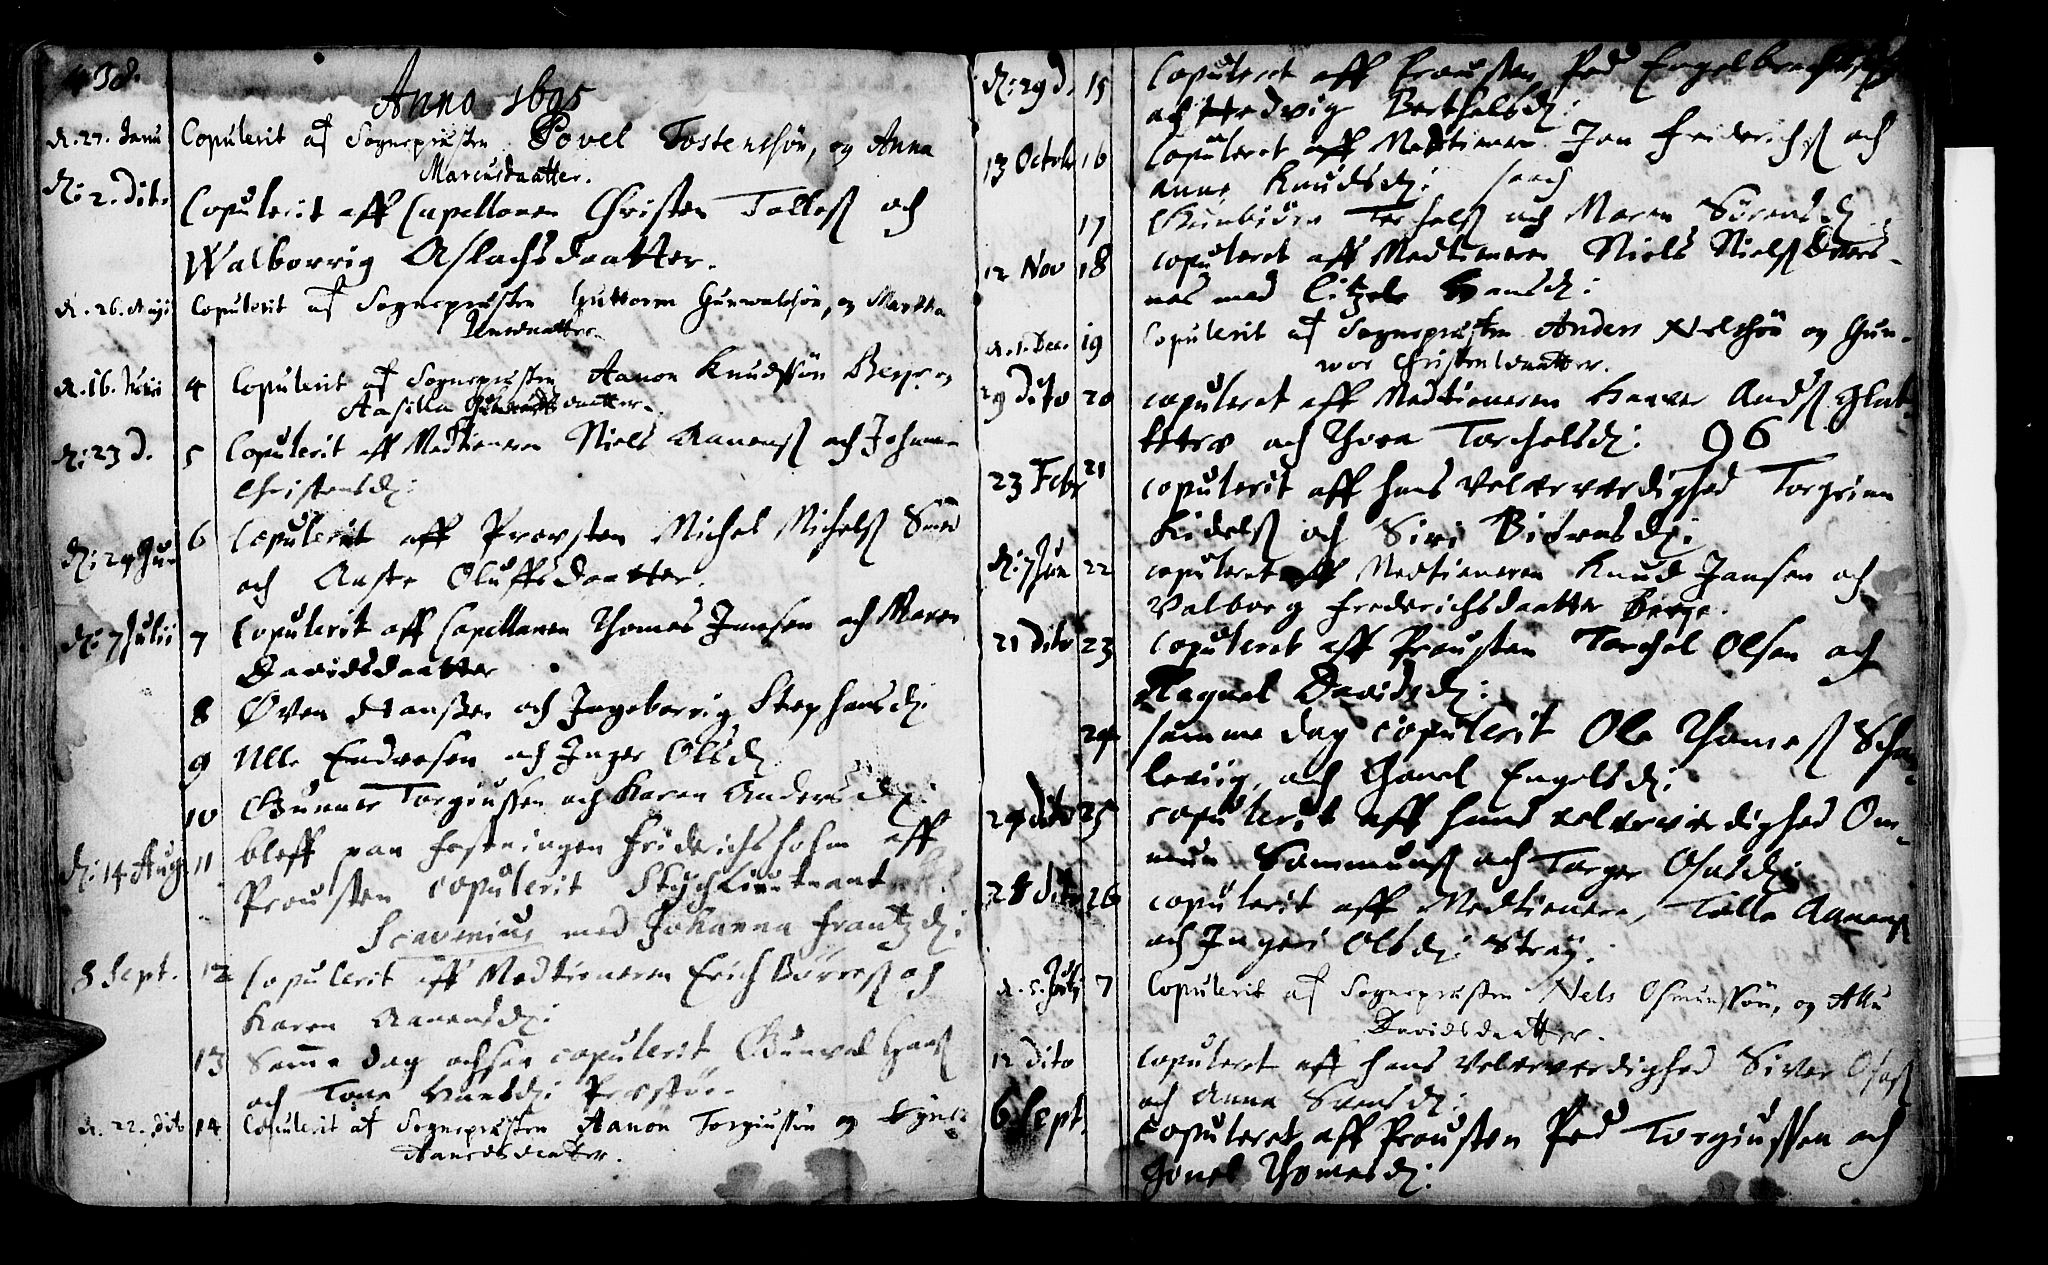 438.
Anno 1695
d. 27. Janu Copulerit af Sogneprästen Povel Tostensøn, og Anna
Marcusdaatter.
d: 2. dito Copulerit aff Capellanen Christen Talleß och
Walborrig Aslachsdaatter.
d. 26. Maji Copulerit af Sogneprästen Guttorm Gunwaldsøn, og Martha
d. 16. Junii 4 Copulerit af Sogneprästen Aanon Knudssøn Berge og
Aasilla daatter.
d: 23 d. 5 Copulerit aff Medtieneren Niels Aanenß och Johanna
Christensd:
d: 29 Jun 6 Copulerit aff Provsten Michel Michelß Smed
och Aaste Oluffsdaatter.
d: 7 Julii 7 Copulerit aff Capellanen Thomas Jansen och Maren
Davidsdaatter
8 Øven Hanßen och Ingeborrig Stephensd:
9 Ulle Endresen och Inger Olsd:
10 Gunner Torgiussen och Karen Andersd:
d: 14 Aug. 11 bleff paa Festningen Friderichsholm aff
Prousten copulerit Stychlieutnant
Scavenius med Johanna Frantzd:
8 Sept. 12 Copulerit aff Medtieneren Erich Børreß och
Karen Aanensd:
13 Samme dag ochsaa copulerit Gunval Hanß
och Tone Hansd:
d. 22. dito 14 Copulerit af Sogneprästen Aanon Torgiussøn og
daatter.
d: 29 d. 15 Copuleret aff Prousten Ped Engelbrechts
och Hedvig Berthelsd:
13 Octobr 16 Copuleret aff Medtieneren Jan Friderichß och
Anne Knudsd:
17 Gunbiørn Terkelß och Maren Sørensd:
12 Nov 18 copuleret aff Medtieneren Niels Nielß
nes med Citzele Hansd:
d. 1. Dec. 19 Copulerit af Sogneprästen Anders Nielssøn og Gun-
vor Christensdaatter.
29 dito 20 copuleret aff Medtieneren Haaver Andß Glat-
och Thora Torchelsd: 96
23 Febr 21 copulerit aff hans Velærværdighed Torgrim
Kidelß och Siri Biørnsd:
d: 7 Jun 22 copuleret aff Medtieneren Knud Jansen och
Valborg Frederichsdaatter Berge.
21 dito 23 copuleret aff Prousten Torchel Olsen och
Ragnel Davidsd:
24 samme dag copulerit Ole Thomeß
och Gonel Engelsd:
24 dito 25 copulerit aff hans velærværdighed Om-
mun Sammunß och Torger Osuldsd:
28 dito 26 copulerit aff Medtieneren, Talle Aanenß
och Ingeri Olsd: Stray.
d. 5. Julij 7 Copulerit af Sogneprästen Nels Osmunssøn, og
Davidsdaatter.
12 dito copuleret aff hans Velærværdighed Siver Olsß
och Anna Svensd:
6 Sept. Copuleret aff Prousten Ped Torgiussen och
Gonel Thomesd: